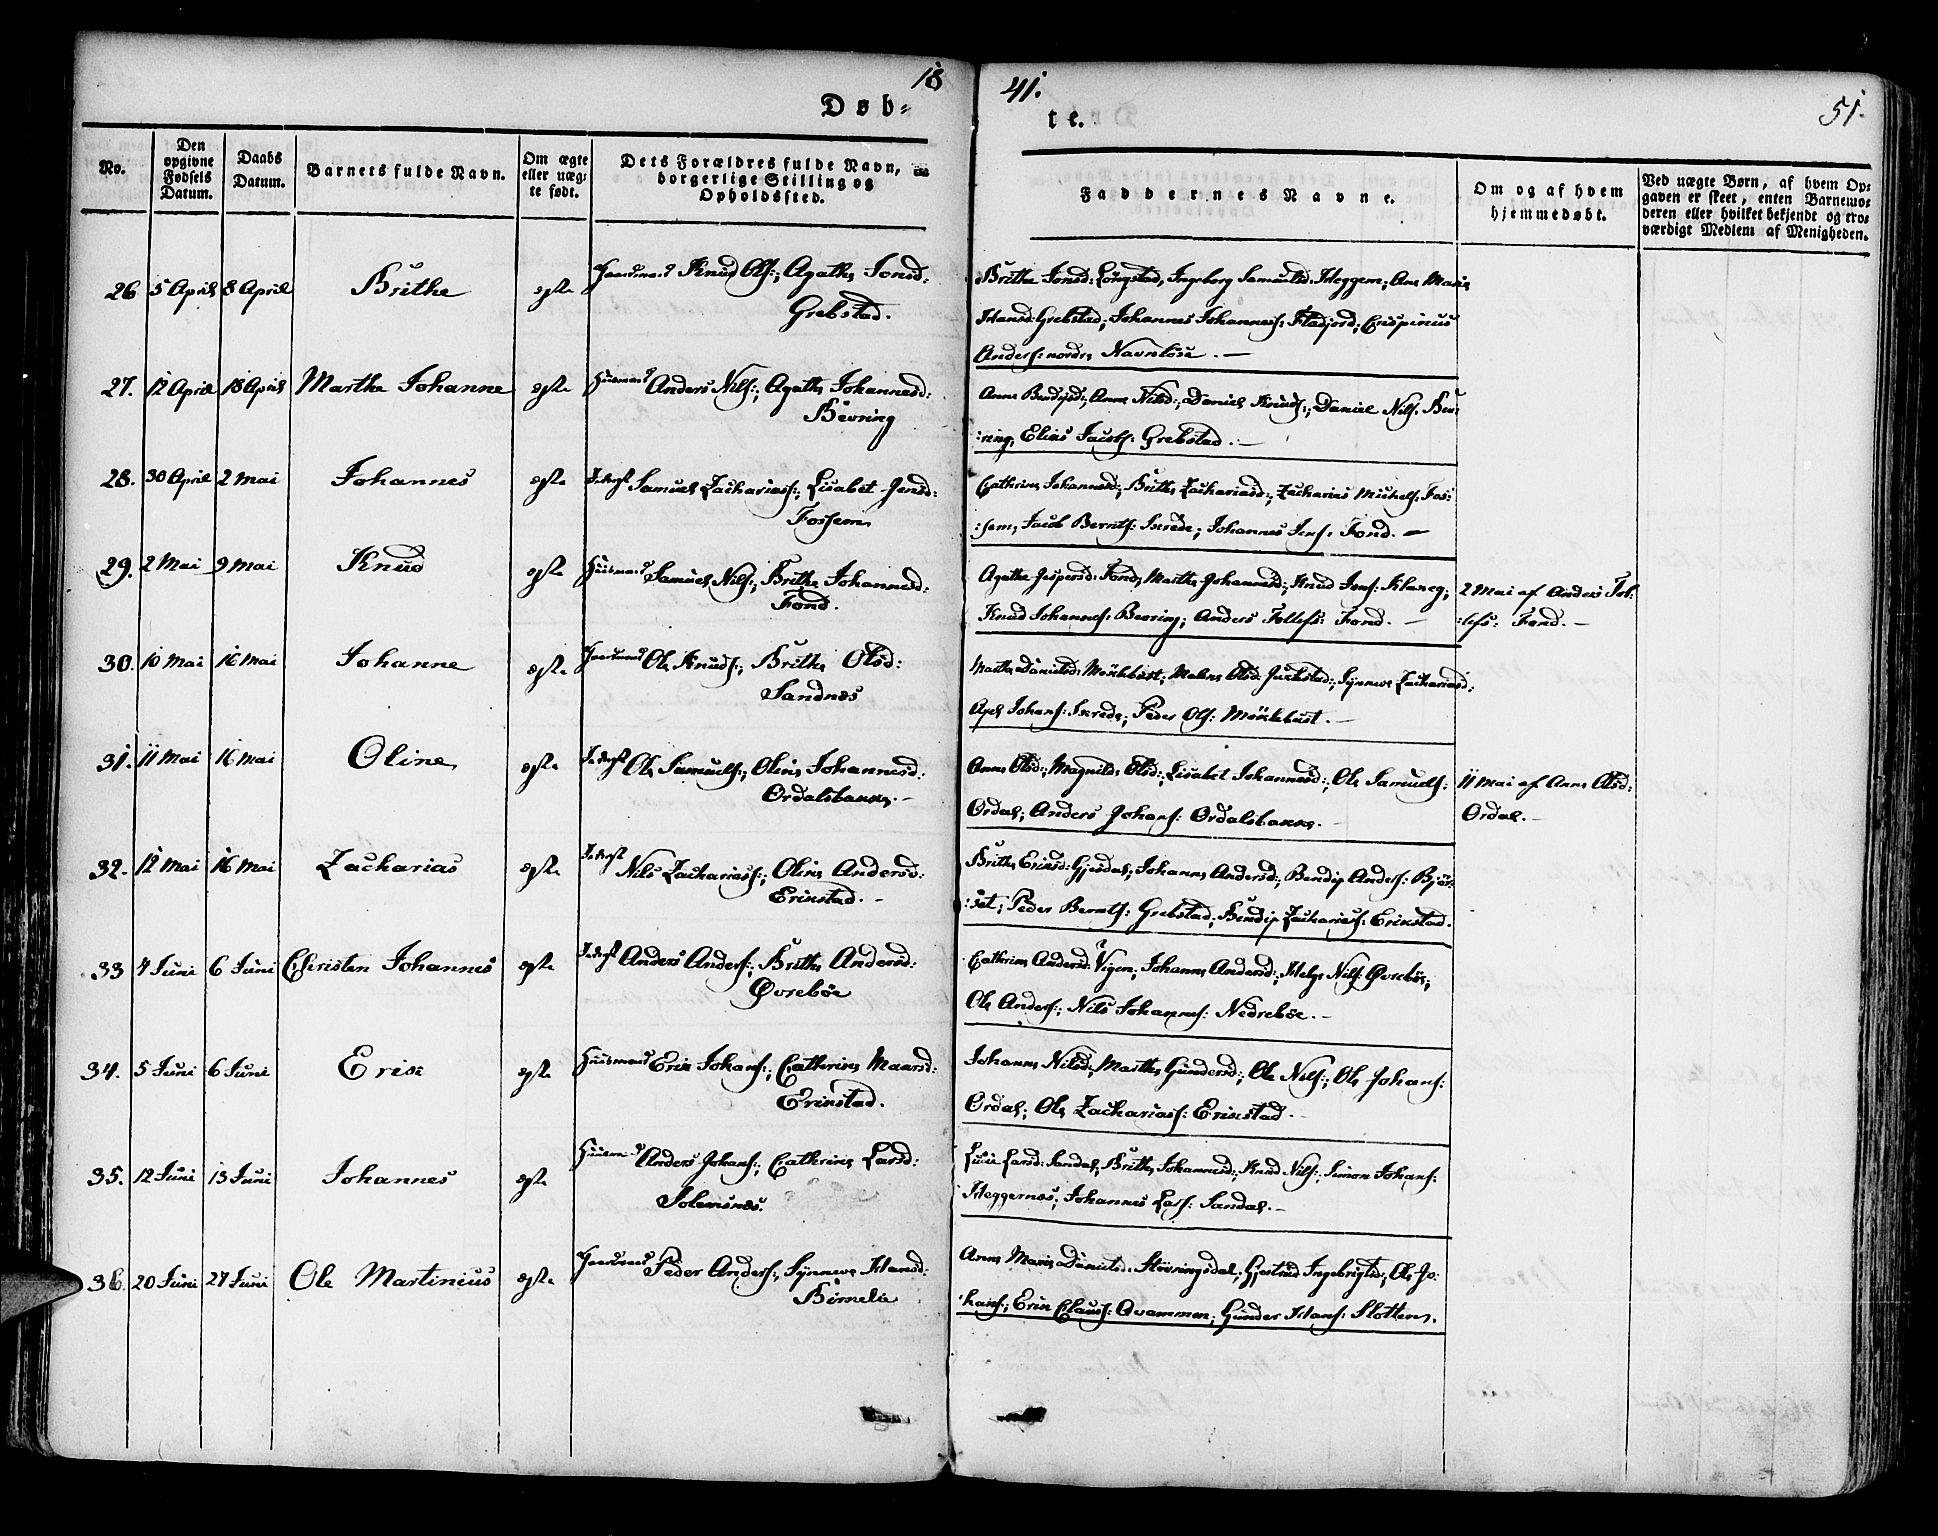 18 41.
51.
Døb-
te.
No.
Den opgivne Fødsels Datum.
Daabs Datum.
Barnets fulde Navn.
Om ægte eller uægte født.
Dets Forældres fulde Navn, borgerlige Stilling og Opholdssted.
Faddernes Navne.
Om og af hvem hjemmedøbt.
Ved uægte Børn, af hvem Opgaven er skeet, enten Barnemoderen eller hvilket bekjendt og troværdigt Medlem af Menigheden.
26 5 April 8 April Brithe egte Gaardmand Knud Ols:, Agathe Jonsd:
Grebstad.
Brithe Jonsd: Longstad, Ingeborg Samuelsd: Heggem, Ane Marie
Hansd: Grebstad; Johannes Johanness: Fladjord, Crispinus
Anders: nordre Navnløse. —
27. 12 April 18 April Marthe Johanne egte Huusmand Anders Nils:, Agathe Johannesd:
Bevring
Anne Bendixd:, Anne Nilsd:, Daniel Knuds:, Daniel Nils: Bev-
:ring, Elias Jacobs: Grebstad. —
28. 30 April 2 Mai Johannes egte Federst Samuel Zachariass:, Lisabet Jensd:
Fossem
Cathrine Johannesd:, Brithe Zachariasd:, Zacharias Michels: Fos-
:sem, Jacob Bernts: Skrede, Johannes Jens: Fond. —
29. 2 Mai 9 Mai Knud egte Huusmand Samuel Nils:, Brithe Johannesd:
Fond.
Agathe Jespersd: Fond, Marthe Johannesd:, Knud Jens: Klaneg;
Knud Johannes: Bevring; Anders Tollefs: Fond. —
2 Mai af Anders Tol-
:lefs: Fond. —
30. 10 Mai 16 Mai Johanne egte Gaardmand Ole Knuds:, Brithe Olsd:
Sandnes
Marthe Danielsd: Møklebust, Malene Olsd: Juckstad, Synneve Zachariasd:
Axel Johans: Skrede, Peder Ols: Møklebust. —
31. 11 Mai 16 Mai Oline egte Federst Ole Samuels:, Oline Johannesd:
Ordalsbakke. —
Anne Olsd:, Magnilde Olsd:, Lisabet Johannesd:, Ole Samuels:
Ordal; Anders Johans: Ordalsbakke. —
11 Mai af Anne Olsd:
Ordal. —
32. 12 Mai 16 Mai Zacharias egte Federst Nils Zachariass:, Oline Andersd:
Erikstad. —
Brithe Eriksd: Gjesdal; Johanne Andersd:, Bendix Anders: Bjør-
:set; Peder Bernts: Grebstad; Bendix Zachariass: Erikstad.
33 4 Juni 6 Juni Christen Johannes egte Federst Anders Anders:, Brithe Andersd:
Øvrebøe
Cathrine Andersd: Vigen; Johanne Andersd:, Helge Nils: Øvrebøe,
Ole Anders:, Nils Johannes: Nedrebøe. —
34. 5 Juni 6 Juni Erik egte Huusmand Erik Johans:, Cathrine Maarsd:
Erikstad.
Johanne Nilsd:, Marthe Gundersd:, Ole Nils:, Ole Johans:
Ordal; Ole Zachariass: Erikstad. —
35. 12 Juni 13 Juni Johannes egte Huusmand Anders Johans:, Cathrine Larsd:
Solemsnes.
Lucie Larsd: Sandal; Brithe Johannesd:, Knud Nils:, Simon Johans:
Heggernes; Johannes Lars: Sandal. —
36. 20 Juni 27 Juni Ole Martinius egte Gaardmand Peder Anders:, Synneve Hansd:
Birnelie
Anne Marie Danielsd: Støvringsdal, Gjertrud Ingebrigtsd:, Ole Jo-
:hans:, Erik Clauss: Qvammen, Gunder Hans: Slotten.